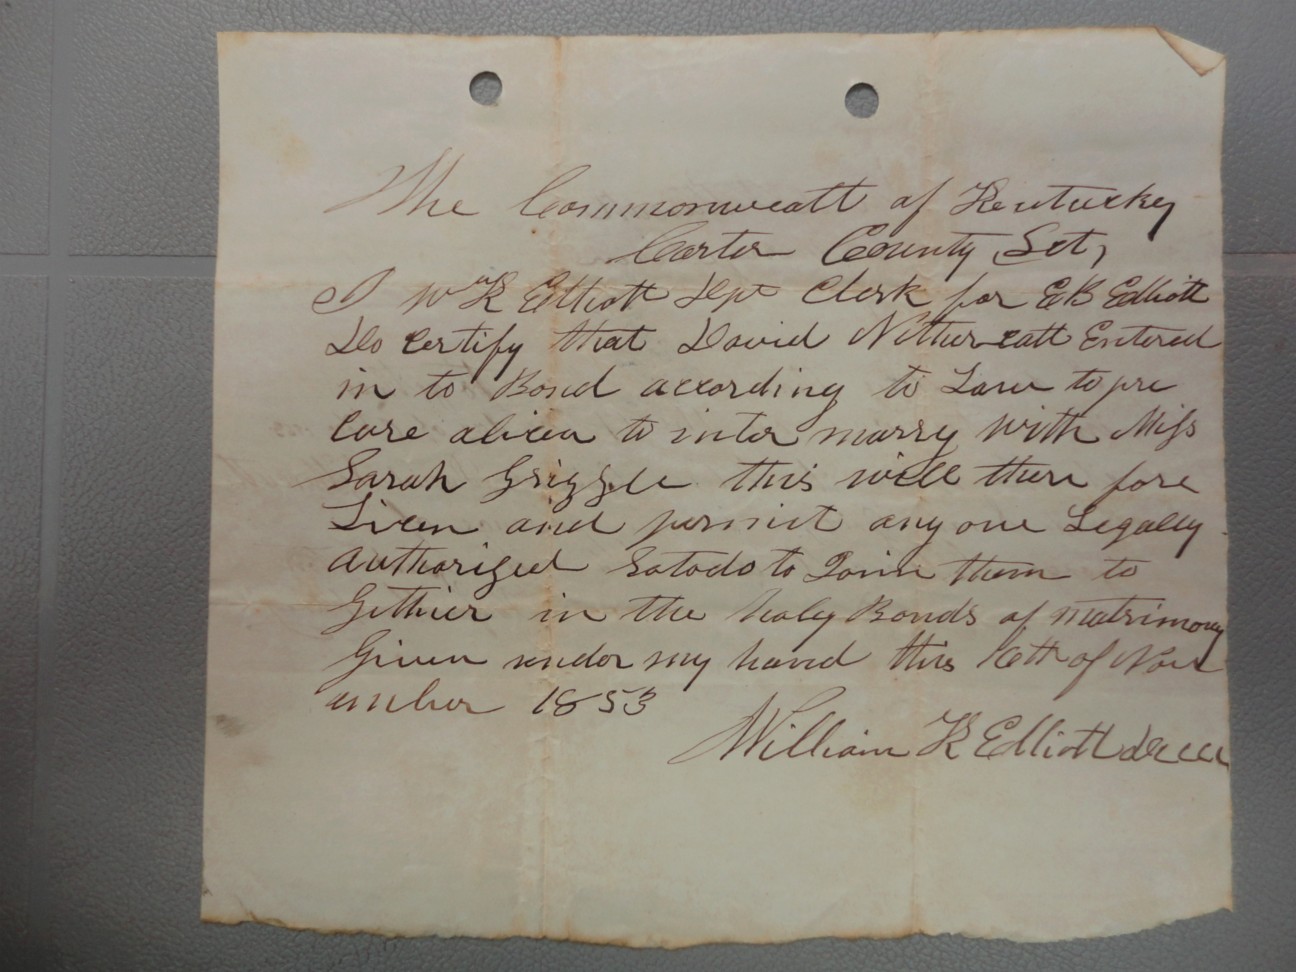 The Commonwealth of Kentucky
Carter County Sct,
I Wm K Elliott Dpt Clerk for EB Elliott
Do certify that David Nethercatt Entered
in to Bond according to Law to pre
cure a licen to inter marry with Miss
Sarah Grizzle this will there fore
Licen and permit any one Legally
authorized So to do to Join them to
Gethier in the holy Bonds of matrimony
Given under my hand this of Nov
ember 1853
William K Elliott